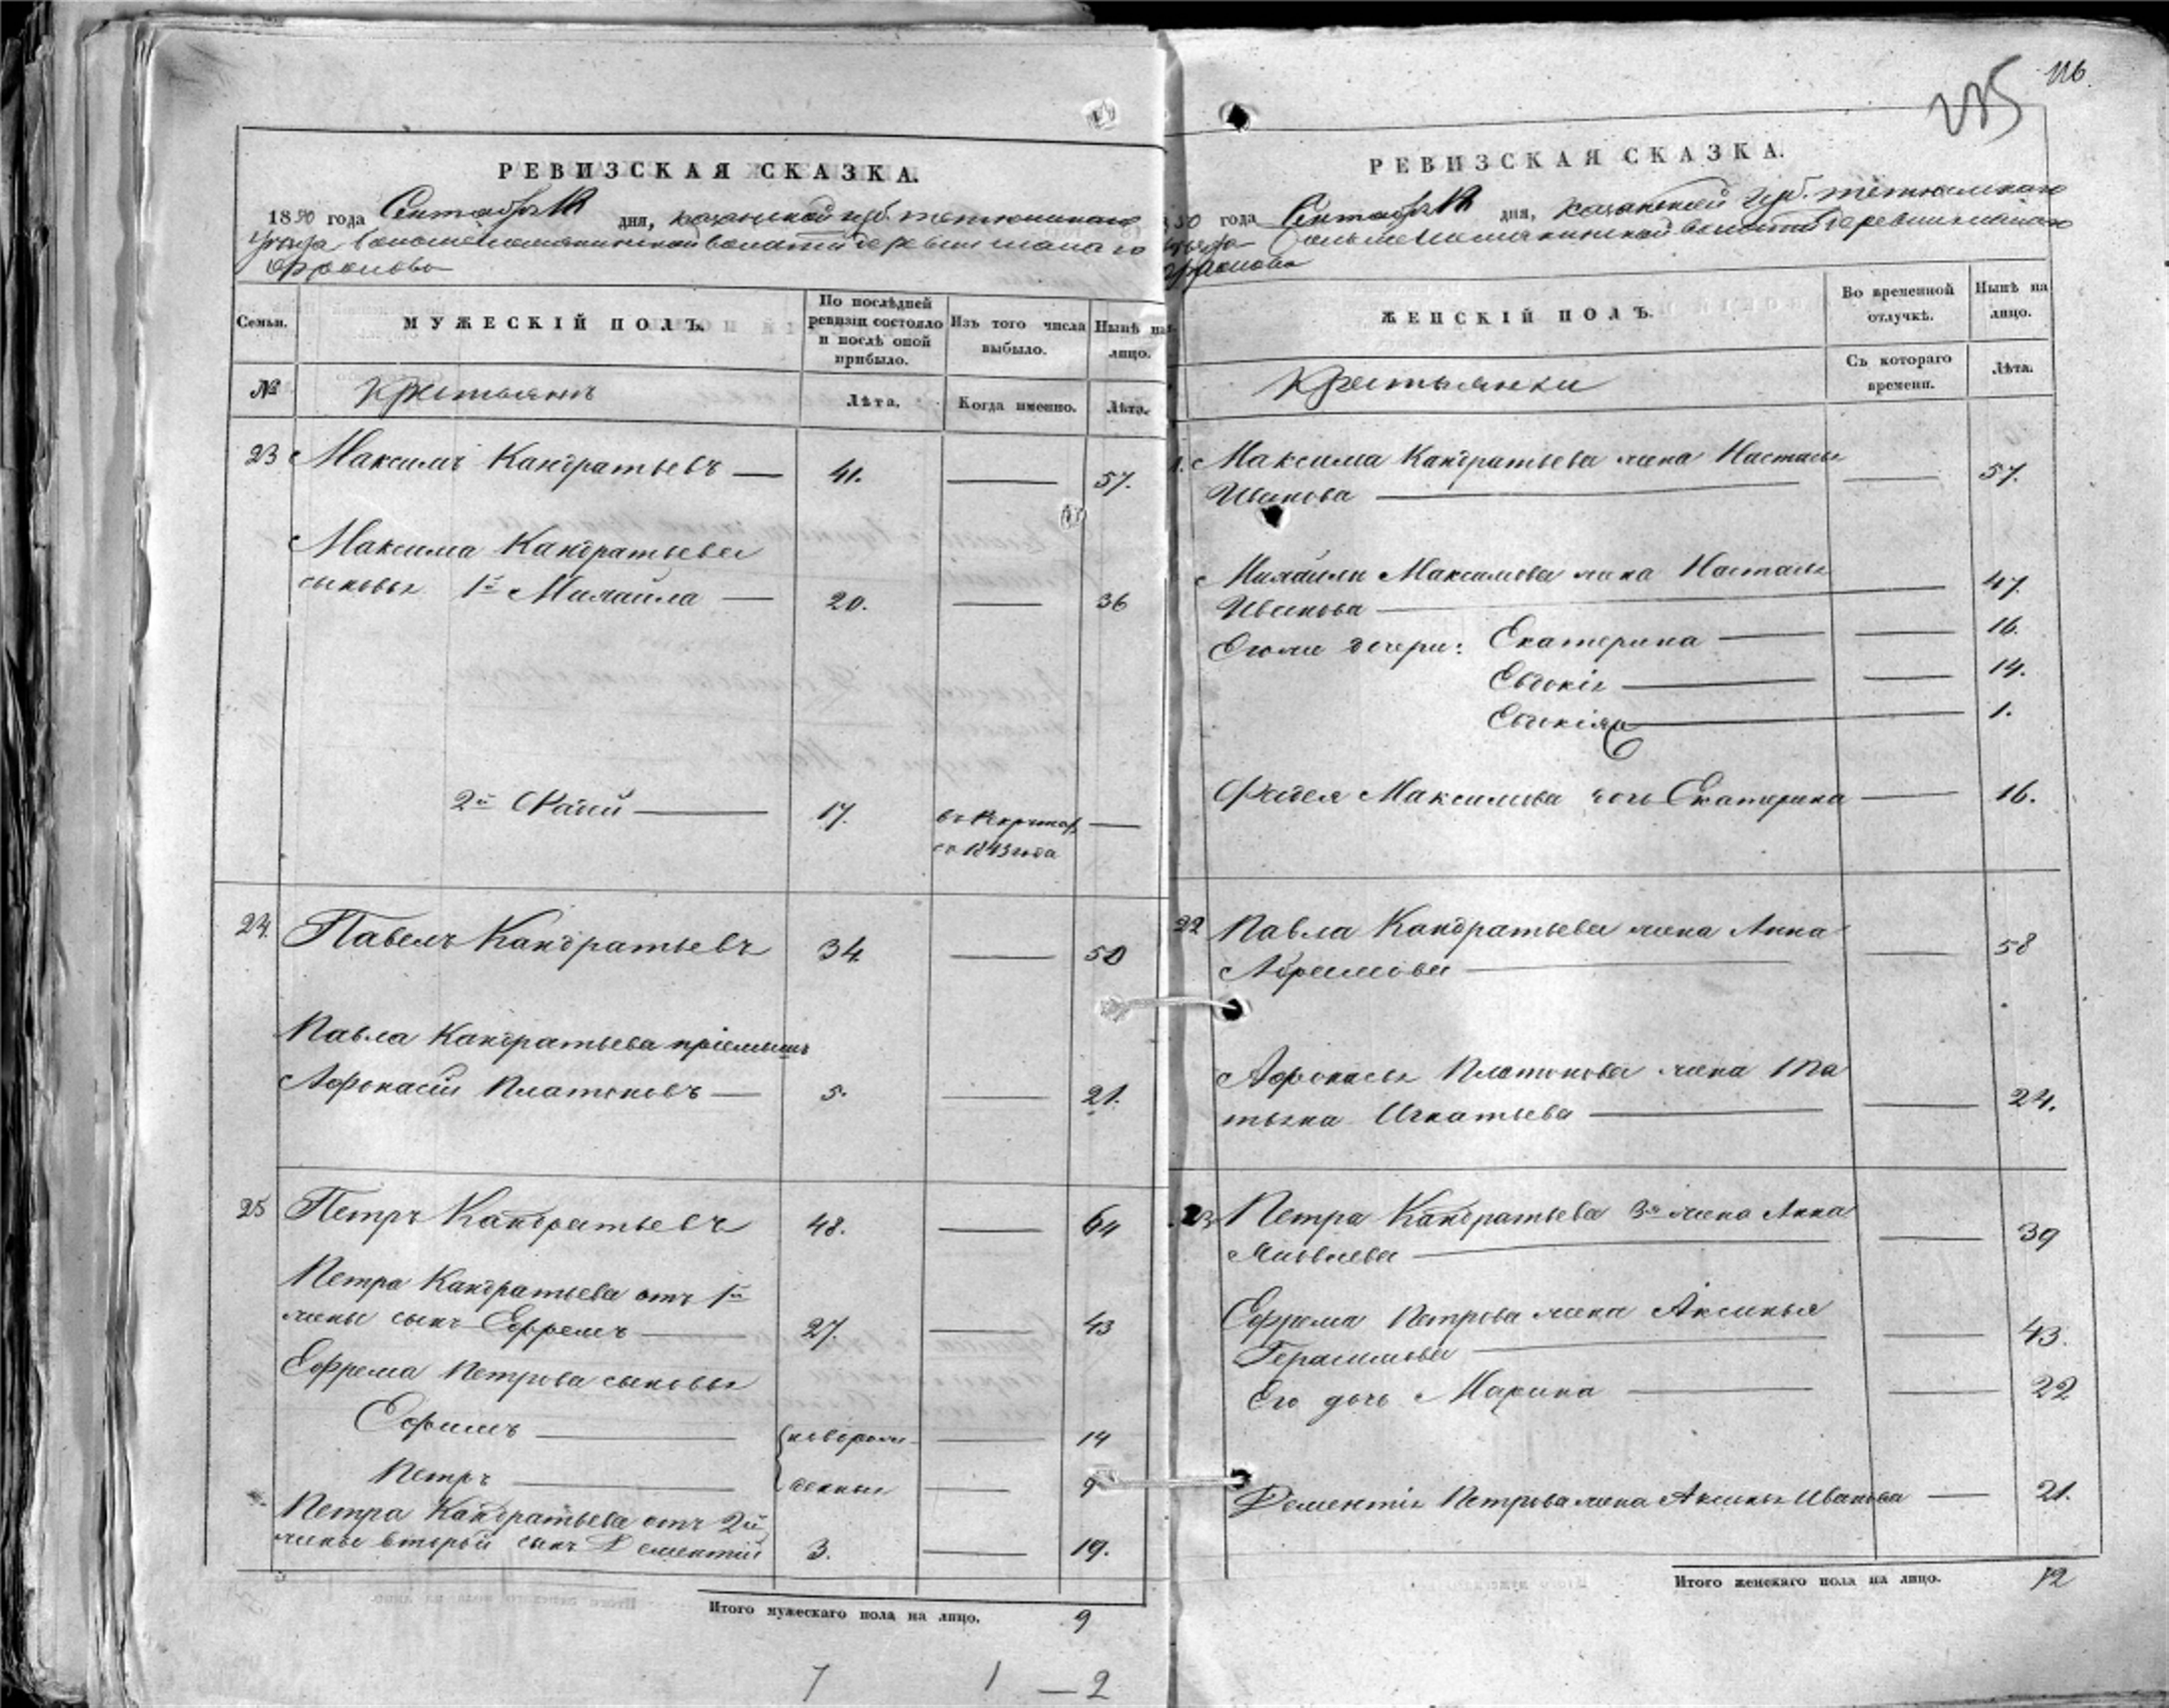 РЕВИЗСКАЯ СКАЗКА.
1850 года Сентября дня, казанской губ. тетюшскаго
Уезда волости деревни
МУЖЕСКІЙ ПОЛЪ.
Семьи.
№
По послѣдней ревизіи состояло и послѣ оной прибыло.
Лѣта.
Изъ того числа выбыло.
Когда именно.
Нынѣ на лицо.
Лѣта.
Крестьянъ
23 Максимъ Кандратьевъ — 41. — 57.
Максима Кандратьева
сыновья 1й Михайла — 20. — 36
2й Фадей — 17. въ рекрутах —
съ 1843 года
24. Павелъ Кандратьевъ 34. — 50
Павла Кандратьева пріемышъ
Афонасій Платоновъ — 5. — 21.
25 Петръ Кандратьевъ 48. — 64
Петра Кандратьева отъ 1й
жены сынъ Ефремъ — 27. — 43
Ефрема Петрова сыновья
Ефимъ — новорож — 14
Петръ — денныя — 9
Петра Кандратьева отъ 2й
жены второй сынъ Дементій 3. — 19.
Итого мужескаго пола на лицо. 9
7 1 — 2
116
225
РЕВИЗСКАЯ СКАЗКА.
1850 года Сентября дня, казанской губ. тетюшскаго
волости деревни
ЖЕНСКІЙ ПОЛЪ.
Во временной отлучкѣ.
Съ котораго времени.
Нынѣ на лицо.
Лѣта.
Крестьянки
Максима Кандратьева жена Настасья
Иванова — — 57.
Михайлы Максимова жена Настасья
Иванова — 47.
Ево же дочери: Екатерина — — 16.
Евдокія — — 14.
Евдокія — 1.
Фадея Максимова дочь Екатерина — 16.
22 Павла Кандратьева жена Анна
Абрамова — — 58
Афонасья Платонова жена Та
тьяна Игнатьева — — 24.
23 Петра Кандратьева 3я жена Анна
Яковлева — — 39
Ефрема Петрова жена Аксинья
Герасимова — — 43.
Его дочь Марина — — 22
Дементія Петрова жена Аксинья Иванова — 21.
Итого женскаго пола на лицо. 12